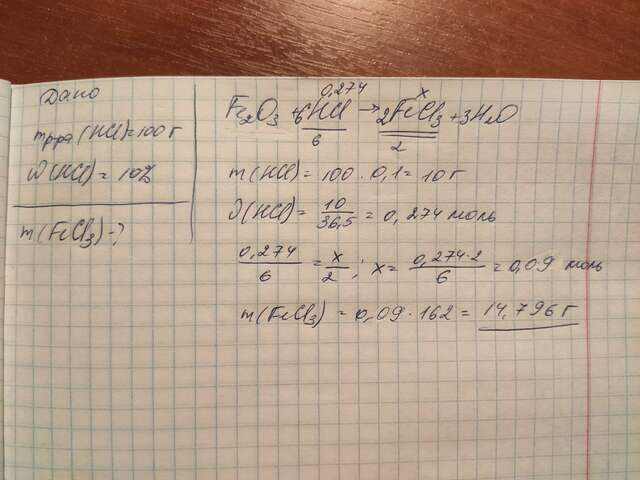 Дано
m р-ра (HCl) = 100 г
W (HCl) = 10%
m (FeCl₃) - ?
0,274 x
Fe₂O₃ + 6HCl → 2FeCl₃ + 3H₂O
6 2
m (HCl) = 100 · 0,1 = 10 г
ν (HCl) = 10/36,5 = 0,274 моль
0,274/6 = x/2 ; x = 0,274·2/6 = 0,09 моль
m (FeCl₃) = 0,09 · 162 = 14,796 г